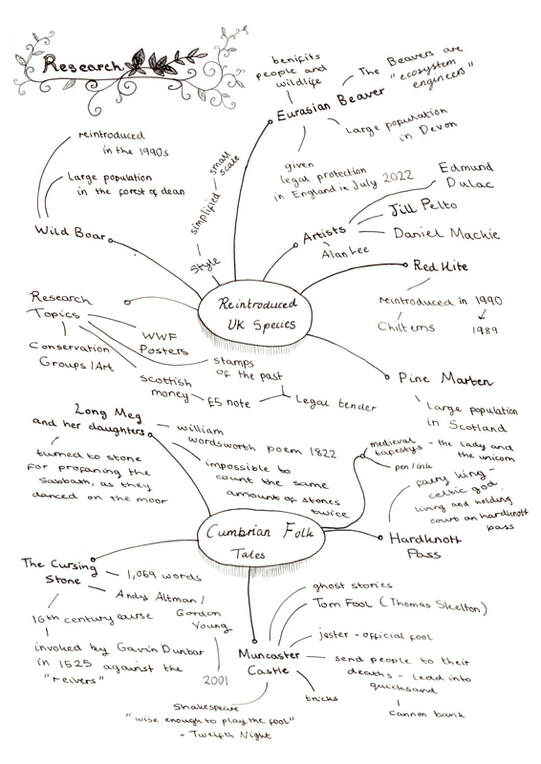 Research
benifits
people and
wildlife
The Beavers are
"ecosystem
engineers"
Eurasian Beaver
Large population
in Devon
given
legal protection
in England in July 2022
reintroduced
in the 1990s
Large population
in the forest of dean
Wild Boar
small
scale
simplified
Style
Edmund
Dulac
Jill Pelto
Artists
Daniel Mackie
Alan Lee
Red Kite
reintroduced in 1990
Chilterns
1989
Reintroduced
UK Species
Research
Topics
WWF
Posters
Conservation
Groups / Art
stamps
of the past
Scottish
money
£5 note
Legal tender
Pine Marten
Large population
in Scotland
Long Meg
and her daughters
william
wordsworth poem 1822
turned to stone
for profaning the
Sabbath, as they
danced on the moor
impossible to
count the same
amount of stones
twice
medieval
tapestys
- the lady and
the unicorn
pen/ink
fairy king -
celtic god
living and holding
court on hardknott
pass
Hardknott
Pass
Cumbrian Folk
Tales
The Cursing
Stone
1,069 words
Andy Altman /
Gordon
Young
2001
16th century curse
invoked by Gavin Dunbar
in 1525 against the
"reivers"
ghost stories
Tom Fool (Thomas Skelton)
jester - official fool
Muncaster
Castle
send people to their
deaths - lead into
quicksand
cannon bank
tricks
Shakespeare
"wise enough to play the fool"
- Twelfth Night